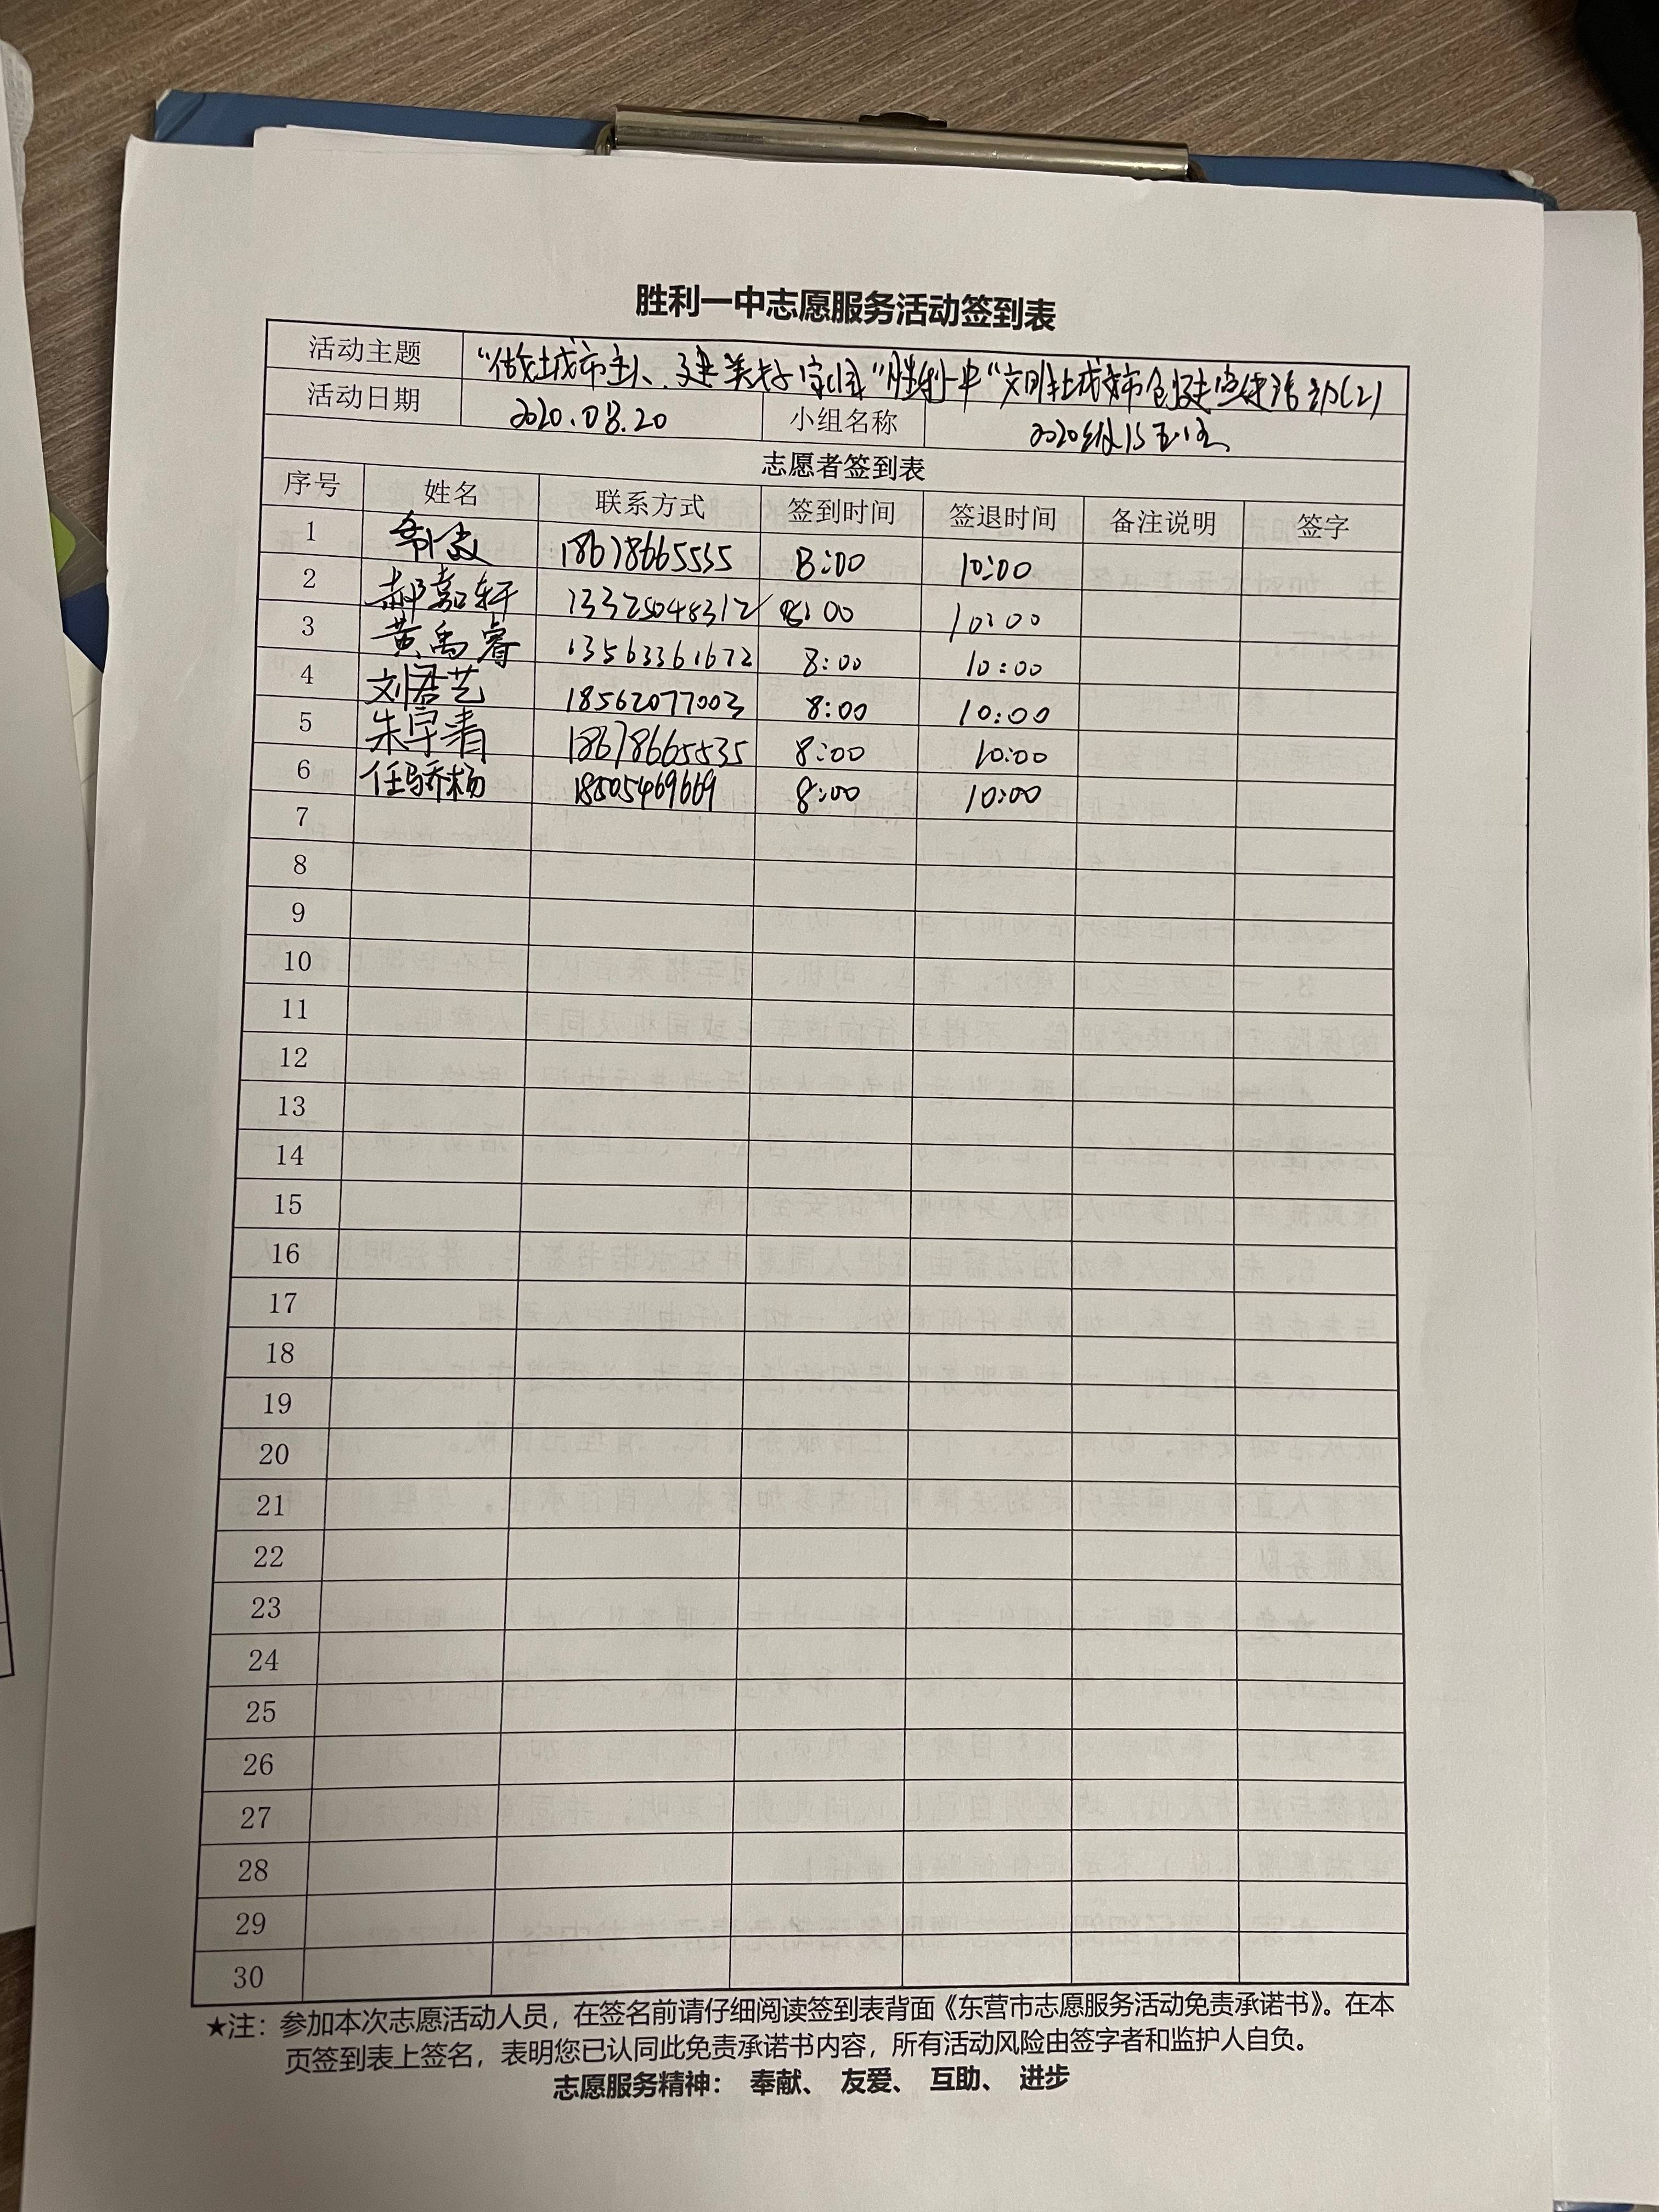 胜利一中志愿服务活动签到表
活动主题 “做城市主人、建美好家园”胜利一中“文明城市创建宣传活动(2)
活动日期 2020.08.20 小组名称 2020级
志愿者签到表
序号 姓名 联系方式 签到时间 签退时间 备注说明 签字
1 18678665535 8:00 10:00
2 郝嘉轩 13325048312 8:00 10:00
3 黄禹睿 13563361672 8:00 10:00
4 刘君艺 18562077003 8:00 10:00
5 朱宇青 18678665535 8:00 10:00
6 任骄杨 18505469669 8:00 10:00
7
8
9
10
11
12
13
14
15
16
17
18
19
20
21
22
23
24
25
26
27
28
29
30
★注：参加本次志愿活动人员，在签名前请仔细阅读签到表背面《东营市志愿服务活动免责承诺书》。在本
页签到表上签名，表明您已认同此免责承诺书内容，所有活动风险由签字者和监护人自负。
志愿服务精神： 奉献、 友爱、 互助、 进步